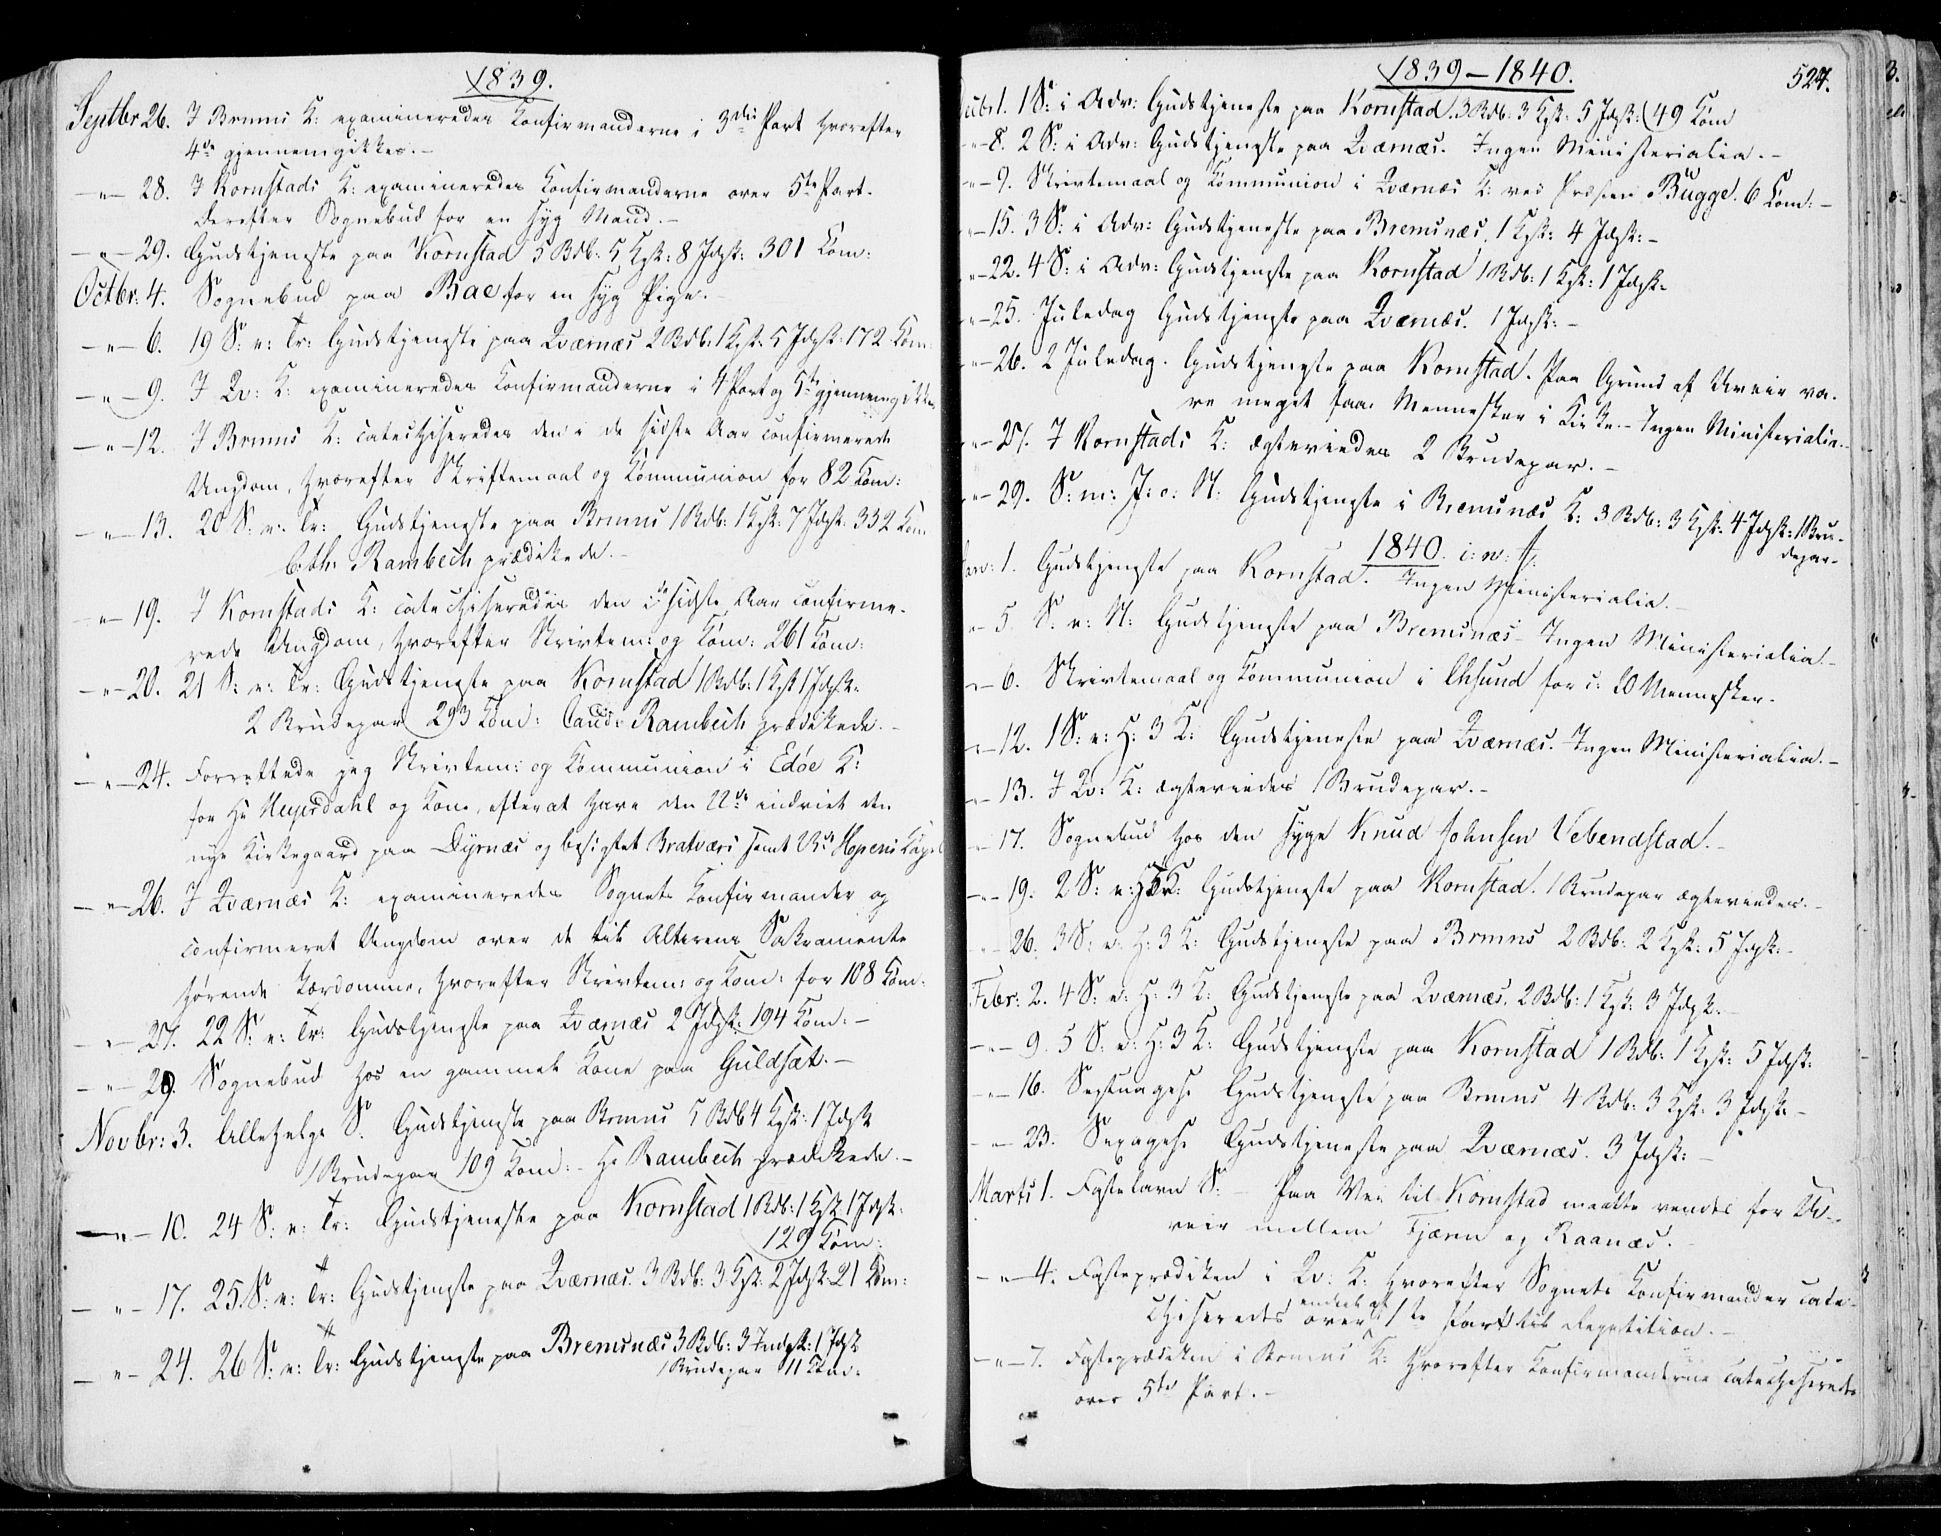 1839.
Septbr 26. I Brmns K: examineredes Confirmanderne i 3die Part hvorefter
4de gjennemgikkes.-
-"- 28. I Kornstads K: examineredes Confirmanderne over 5te Part.
derefter Sognebud for en syg Mand.-
-"- 29. Gudstjeneste paa Kornstad 5 Bdb: 5 Kgk: 8 Jdgk: 301 Com:
Octbr: 4. Sognebud paa Bae for en syg Pige.-
-"- 6. 19 S: e: Tr: Gudstjeneste paa Qværnæs 2 Bdb: 1 Kgk: 5 Jdgk: 172 Com:
-"- 9. I Qv: K: examineredes Confirmanderne i 4 Part og 5te gjennemgikkes
-"- 12. I Brmns K: catechiseredes den i de sidste Aar confirmerede
Ungdom, hvorefter Skriftemaal og Communion for 82 Com:
-"- 13. 20 S: e: Tr: Gudstjeneste paa Brmns 1 Bdb: 1 Kgk: 7 Jdgk: 332 Com
Rambech prædikede.-
-"- 19. I Kornstads K: catechiseredes den i de sidste Aar confirme-
rede Ungdom, hvorefter Skrivtem: og Com: 261 Com:
-"- 20. 21 S: e: Tr: Gudstjeneste paa Kornstad 1 Bdb: 1 Kgk 1 Jdgk:
2 Brudepar 293 Com: Cand: Rambech prædikede.-
-"- 24. Forrettede jeg Skrivtem: og Communion i Edøe K:
for Hr Heyerdahl og Kone, efterat have den 22de indviet den
nye Kirkegaard paa Dyrnæs og besigtet Bratværs samt Hopens Capel
-"- 26. I Qværnæs K: examineredes Sognets Confirmander og
confirmeret Ungdom over de til Alterens Sakramente
hørende Lærdomme, hvorefter Skrivtem: og Com: for 108 Com:
-"- 27. 22 S: e: Tr: Gudstjeneste paa Qværnæs 2 Jdgk: 194 Com:-
-"- 29. Sognebud hos en gammel Kone paa Guldsæt.-
Novbr: 3. Allehelge S. Gudstjeneste paa Brmns 5 Bdb 4 Kgk: 1 Jdgk
1 Brudepar 109 Com:- Hr Rambech prædikede.-
-"- 10. 24 S: e: Tr: Gudstjeneste paa Kornstad 1 Bdb: 1 Kgk 1 Jdgk:
129 Com:
-"- 17. 25. S: e: Tr: Gudstjeneste paa Qværnæs. 3 Bdb: 3 Kgk. 2 Jdgk 21 Com:
-"- 24. 26 S: e: Tr: Gudstjeneste paa Bremsnæs 3 Bdb: 3 Indgk: 1 Jdgk
1 Brudepar 11 Com:
1839-1840.
527.
1. 1 S: i Adv: Gudstjeneste paa Kornstad. 3 Bdb: 3 Kgk: 5 Jdgk: 49 Com
-"- 8. 2 S: i Adv: Gudstjeneste paa Qværnæs. Ingen Ministerialia.-
-"- 9. Skrivtemaal og Communion i Qværnæs K: ved Præsten Bugge. 6 Com:-
-"- 15. 3 S: i Adv: Gudstjeneste paa Bremsnæs. 1 Kgk: 4 Jdgk:-
-"- 22. 4 S: i Adv: Gudstjeneste paa Kornstad 1 Bdb: 1 Kgk: 1 Jdgk-
-"- 25. Juledag Gudstjeneste paa Qværnæs. 1 Jdgk:-
-"- 26. 2 Juledag. Gudstjeneste paa Kornstad. Paa Grund af Uveir va-
re meget faa Mennesker i Kirke.- Ingen Ministerialia.-
-"- 27. I Kornstads K: ægteviedes 2 Brudepar.-
-"- 29. S: m: J: o: N: Gudstjeneste i Bremsnæs K: 3 Bdb: 3 Kgk: 4 Jdgk: 1 Bru-
depar-
1840. i: n: J:
Jan: 1. Gudstjeneste paa Kornstad. Ingen Ministerialia.-
-"- 5. S: e: N: Gudstjeneste paa Bremsnæs- Ingen Ministerialia-
-"- 6. Skrivtemaal og Communion i Chsund for c: 20 Mennesker.
-"- 12. 1 S: e: H: 3 K: Gudstjeneste paa Qværnæs. Ingen Ministerialia.-
-"- 13. I Qv: K: ægteviedes 1 Brudepar.-
-"- 17. Sognebud hos den syge Knud Johnsen Vebenstad.-
-"- 19. 2 S: e: H: 3 K: Gudstjeneste paa Kornstad. 1 Brudepar ægteviedes.-
-"- 26. 3 S: e: H: 3 K: Gudstjeneste paa Brmns 2 Bdb: 2 Kgk: 5 Jdgk:-
Febr: 2. 4 S: e: H: 3 K: Gudstjeneste paa Qværnæs. 2 Bdb: 1 Kgk: 3 Jdgk:-
-"- 9. 5 S: e: H: 3 K: Gudstjeneste paa Kornstad 1 Bdb: 1 Kgk: 5 Jdgk:
-"- 16. Septuages Gudstjeneste paa Brmns 4 Bdb: 3 Kgk: 3 Jdgk-
-"- 23. Sexages Gudstjeneste paa Qværnæs. 3 Jdgk:-
Marts 1. Fastelavn S:- Paa Vei til Kornstad maatte vendes for U-
veir mellem Fjærn og Raanæs.
-"- 4. Fasteprædiken i Qv: K: hvorefter Sognets Confirmander cate-
chiseredes over 1te Part til Repetition.-
-"- 7. Fasteprædiken i Brmns K: hvorefter Confirmanderne catechiseredes
over 5te Part.-